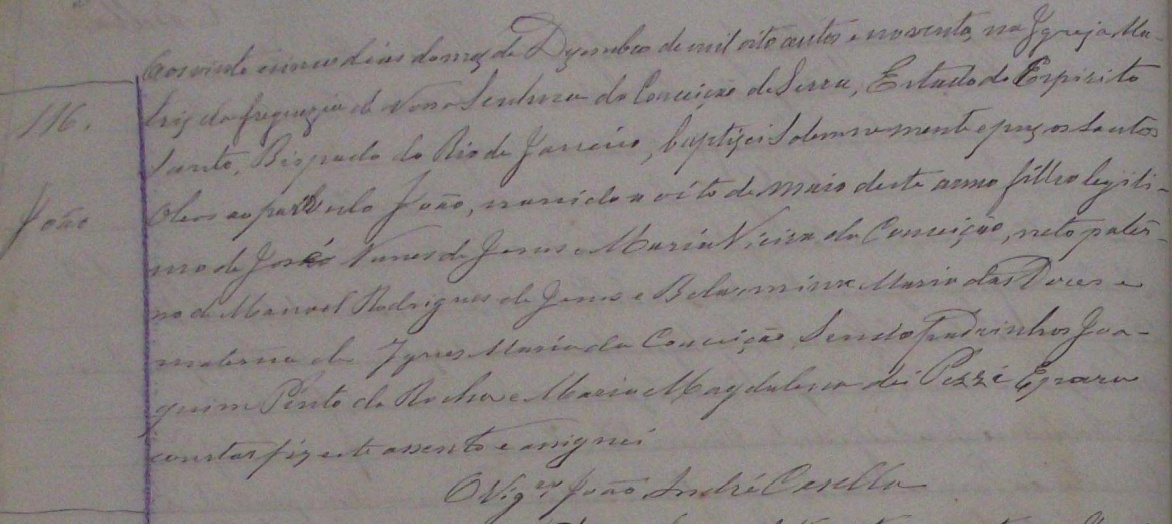 Aos vinte e cinco dias do mez de Dezembro de mil oito centos e noventa, na Igreja Ma-
116.
triz da freguezia de Nossa Senhora da Conceição da Serra, Estado do Espirito
Santo, Bispado do Rio de Janeiro, baptizei solemnemente e puz os Santos
João
Oleos ao parvulo João, nascido a oito de maio deste anno filho legiti-
mo de José Nunes de Jesus e Maria Vieira da Conceição, neto pater-
no de Manoel Rodrigues de Jesus e Belarmina Maria das Dores e
materno de Ignes Maria da Conceição. Sendo Padrinhos Joa-
quim Pinto da Rocha e Maria Magdalena dei Pezzi E para
constar fiz este assento e assignei
O Vigrº João André Casella